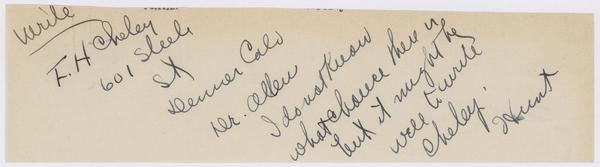 Write
F. H Cheley
601 Steele
St
Denver Colo
Dr. Allen
I do not know
what chance there is
but it might be
well to write
Cheley.
Hunt